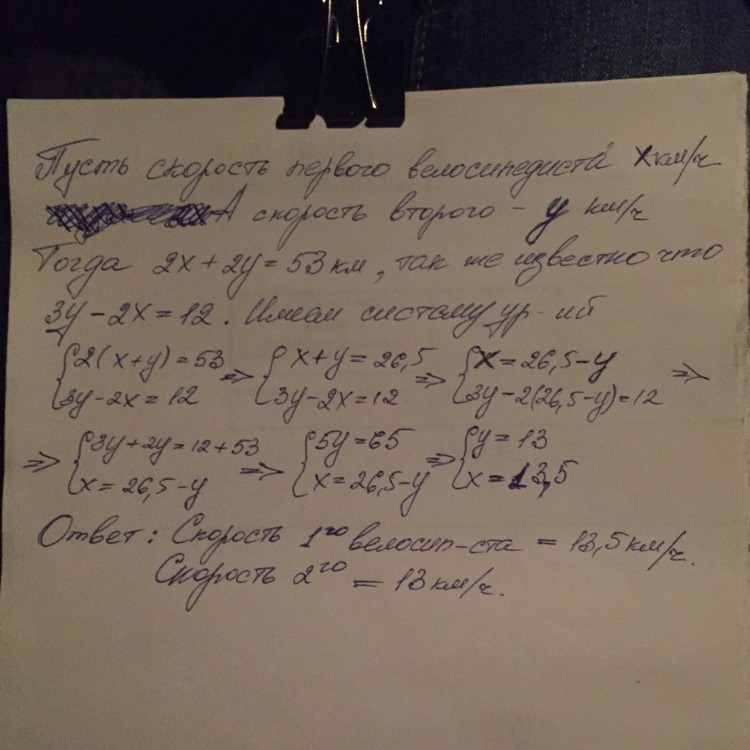 Пусть скорость первого велосипедиста x км/ч
А скорость второго - y км/ч
Тогда 2x + 2y = 53 км, так же известно что
3y - 2x = 12. Имеем систему ур-ий
{2(x+y) = 53 => {x + y = 26,5 => {x = 26,5 - y =>
3y - 2x = 12 3y - 2x = 12 3y - 2(26,5 - y) = 12
=> {3y + 2y = 12 + 53 => {5y = 65 => {y = 13
x = 26,5 - y x = 26,5 - y x = 13,5
Ответ: Скорость 1го велосип-ста = 13,5 км/ч.
Скорость 2го = 13 км/ч.